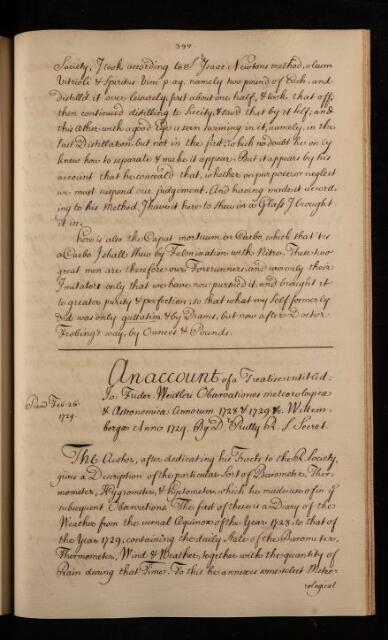 399
Society, I took according to Sr Isaac Newtons method, oleum
Vitrioli & Spiritus Vini p. aq. namely two pound of Each, and
distill'd it over leisurely, first about one half, & took that off;
then continued distilling to Siccity, & tri'd that by it self; and
this Æther with a good Eye is seen swimming in it, namely, in the
last Distillation but not in the first, which no doubt he only
knew how to separate & make it appear. But it appears by his
account that he conceal'd that, whether on purpose or neglect
we must suspend our judgement. And having made it accord-
ing to his Method, I have it here to shew in a Glass I brought
it in.
here is also the Caput mortuum or Carbo, which that 'tis
a Carbo I shall shew by Fulmination with Nitre. These two
great men are therefore our Forerunners, and we only their
Imitators only that we have now pursued it, and brought it
to greater purity & perfection; so that what my self formerly
did was only guttatim & by Drams, but now after Doctor
Frobing's way, by Ounces & Pounds.
An account of a Treatise entitled:
Jo: Frider: Weidleri Observationes meteorologicæ
Read Feb. 26.
1729.
& Astronomicæ Annorum 1728 & 1729 &c. Wittem-
bergæ Anno 1729. By D Rutty R. S. Secret.
The Author, after dedicating his Tracts to the R. Society,
gives a Description of the particular Sort of Barometer, Ther-
mometer, Hygrometer, & Hyetometer, which he made use of in ye
subsequent Observations. The first of these is a Diary of the
Weather from the vernal Æquinox of the Year 1728, to that of
the Year 1729, containing the daily State of the Barometer,
Thermometer, Wind & Weather, together with the quantity of
Rain during that Time. To this he annexes some select Meteo-
rological